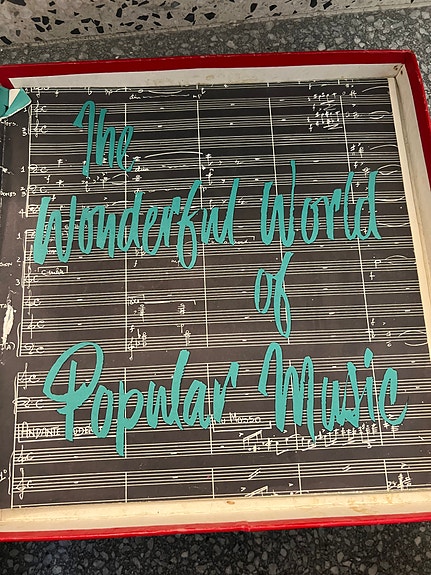 The
Wonderful World
of
Popular Music